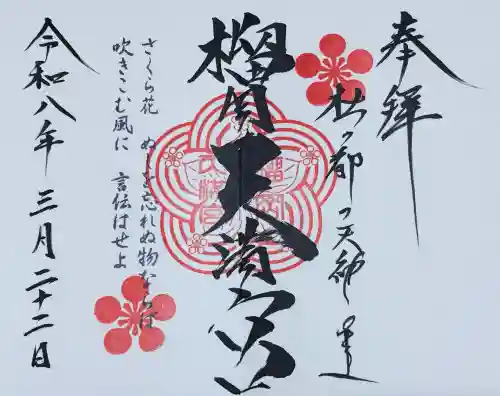 奉拝
杜の都の天神
榴岡天満宮
さくら花 ぬしを忘れぬ物ならば
吹きこむ風に 言伝はせよ
令和八年 三月二十二日